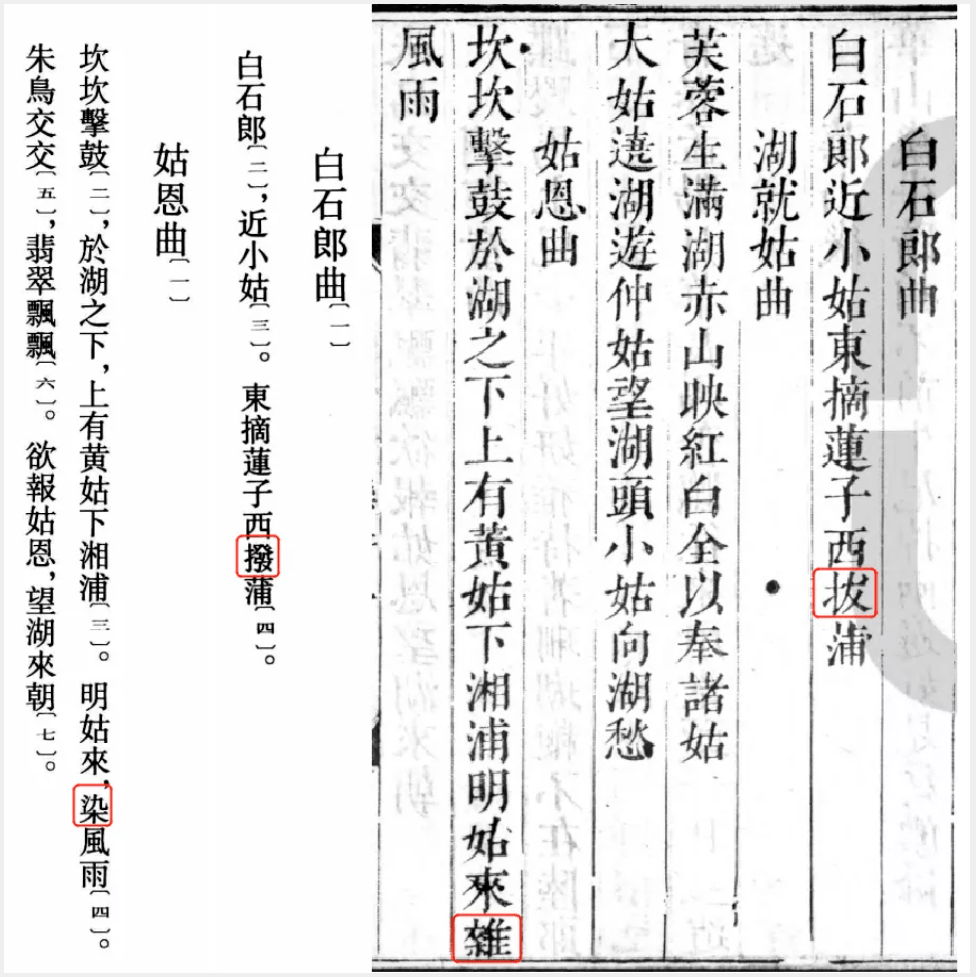 白石郎曲
白石郎近小姑東摘蓮子西拔蒲
湖就姑曲
芙蓉生滿湖赤山映紅白全以奉諸姑
大姑遶湖遊仲姑望湖頭小姑向湖愁
姑恩曲
坎坎擊鼓於湖之下上有黃姑下湘浦明姑來雜
風雨
白石郎曲〔一〕
白石郎〔二〕,近小姑〔三〕。東摘蓮子西撥蒲〔四〕。
姑恩曲〔一〕
坎坎擊鼓〔二〕,於湖之下,上有黄姑下湘浦〔三〕。明姑來,染風雨〔四〕。
朱鳥交交〔五〕,翡翠飄飄〔六〕。欲報姑恩,望湖來朝〔七〕。